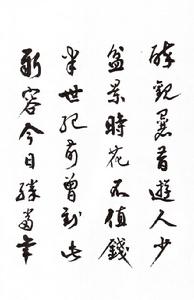 觀曩昔遊人少
盆景時花不值錢
半世紀前曾到此
新容今日勝當年